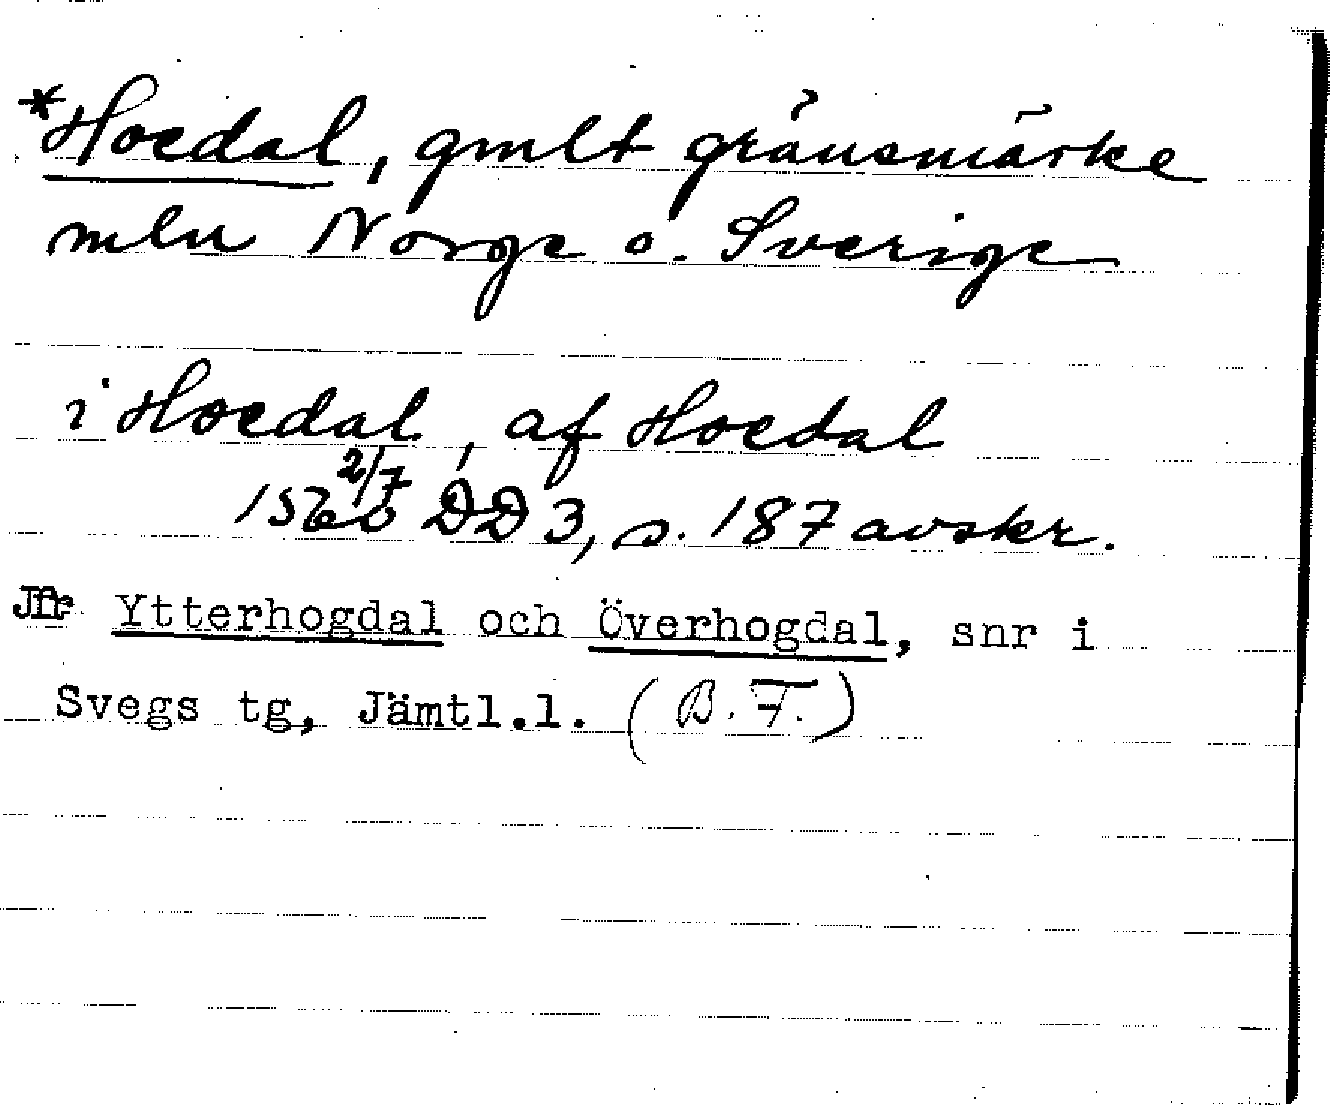 *Hoedal, gmlt gränsmärke
mln Norge o. Sverige
i Hoedal, af Hoedal
2/7
DD 3, s. 187 avskr.
Jfr Ytterhogdal och Överhogdal, snr i
Svegs tg, Jämtl.l. (B.F.)